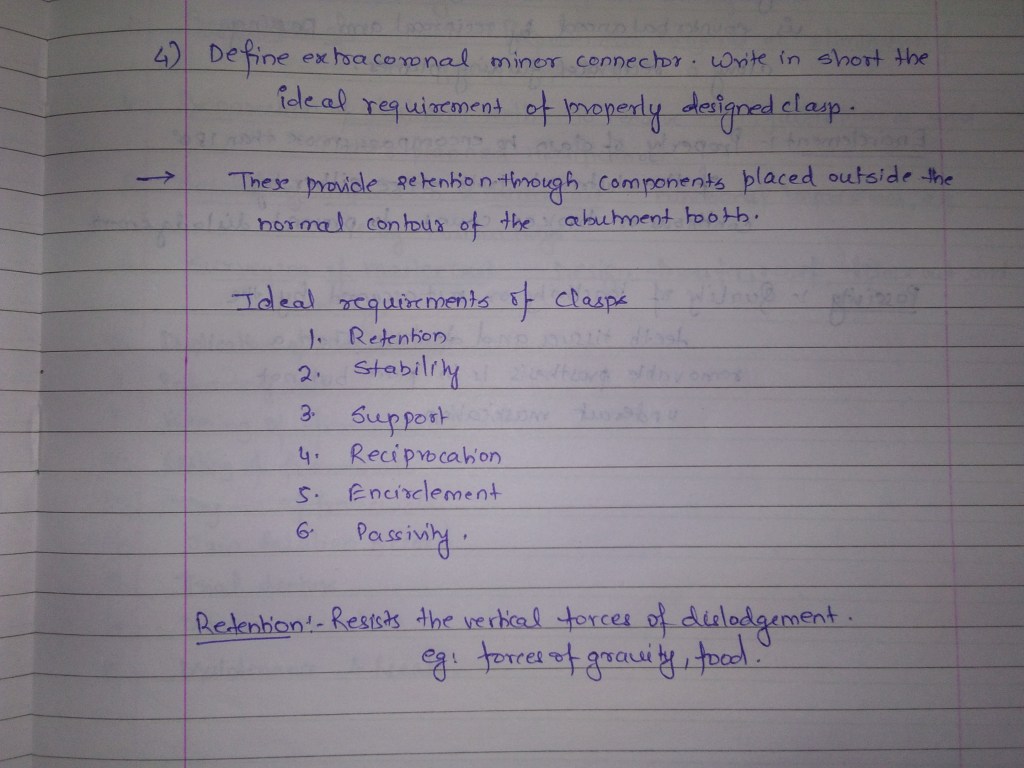 4) Define extracoronal minor connector. Write in short the
ideal requirement of properly designed clasp.
→ These provide retention through components placed outside the
normal contour of the abutment tooth.
Ideal requirments of clasps
1. Retention
2. Stability
3. Support
4. Reciprocation
5. Encirclement
6. Passivity.
Retention:- Resists the vertical forces of dislodgement.
eg: forces of gravity, food.